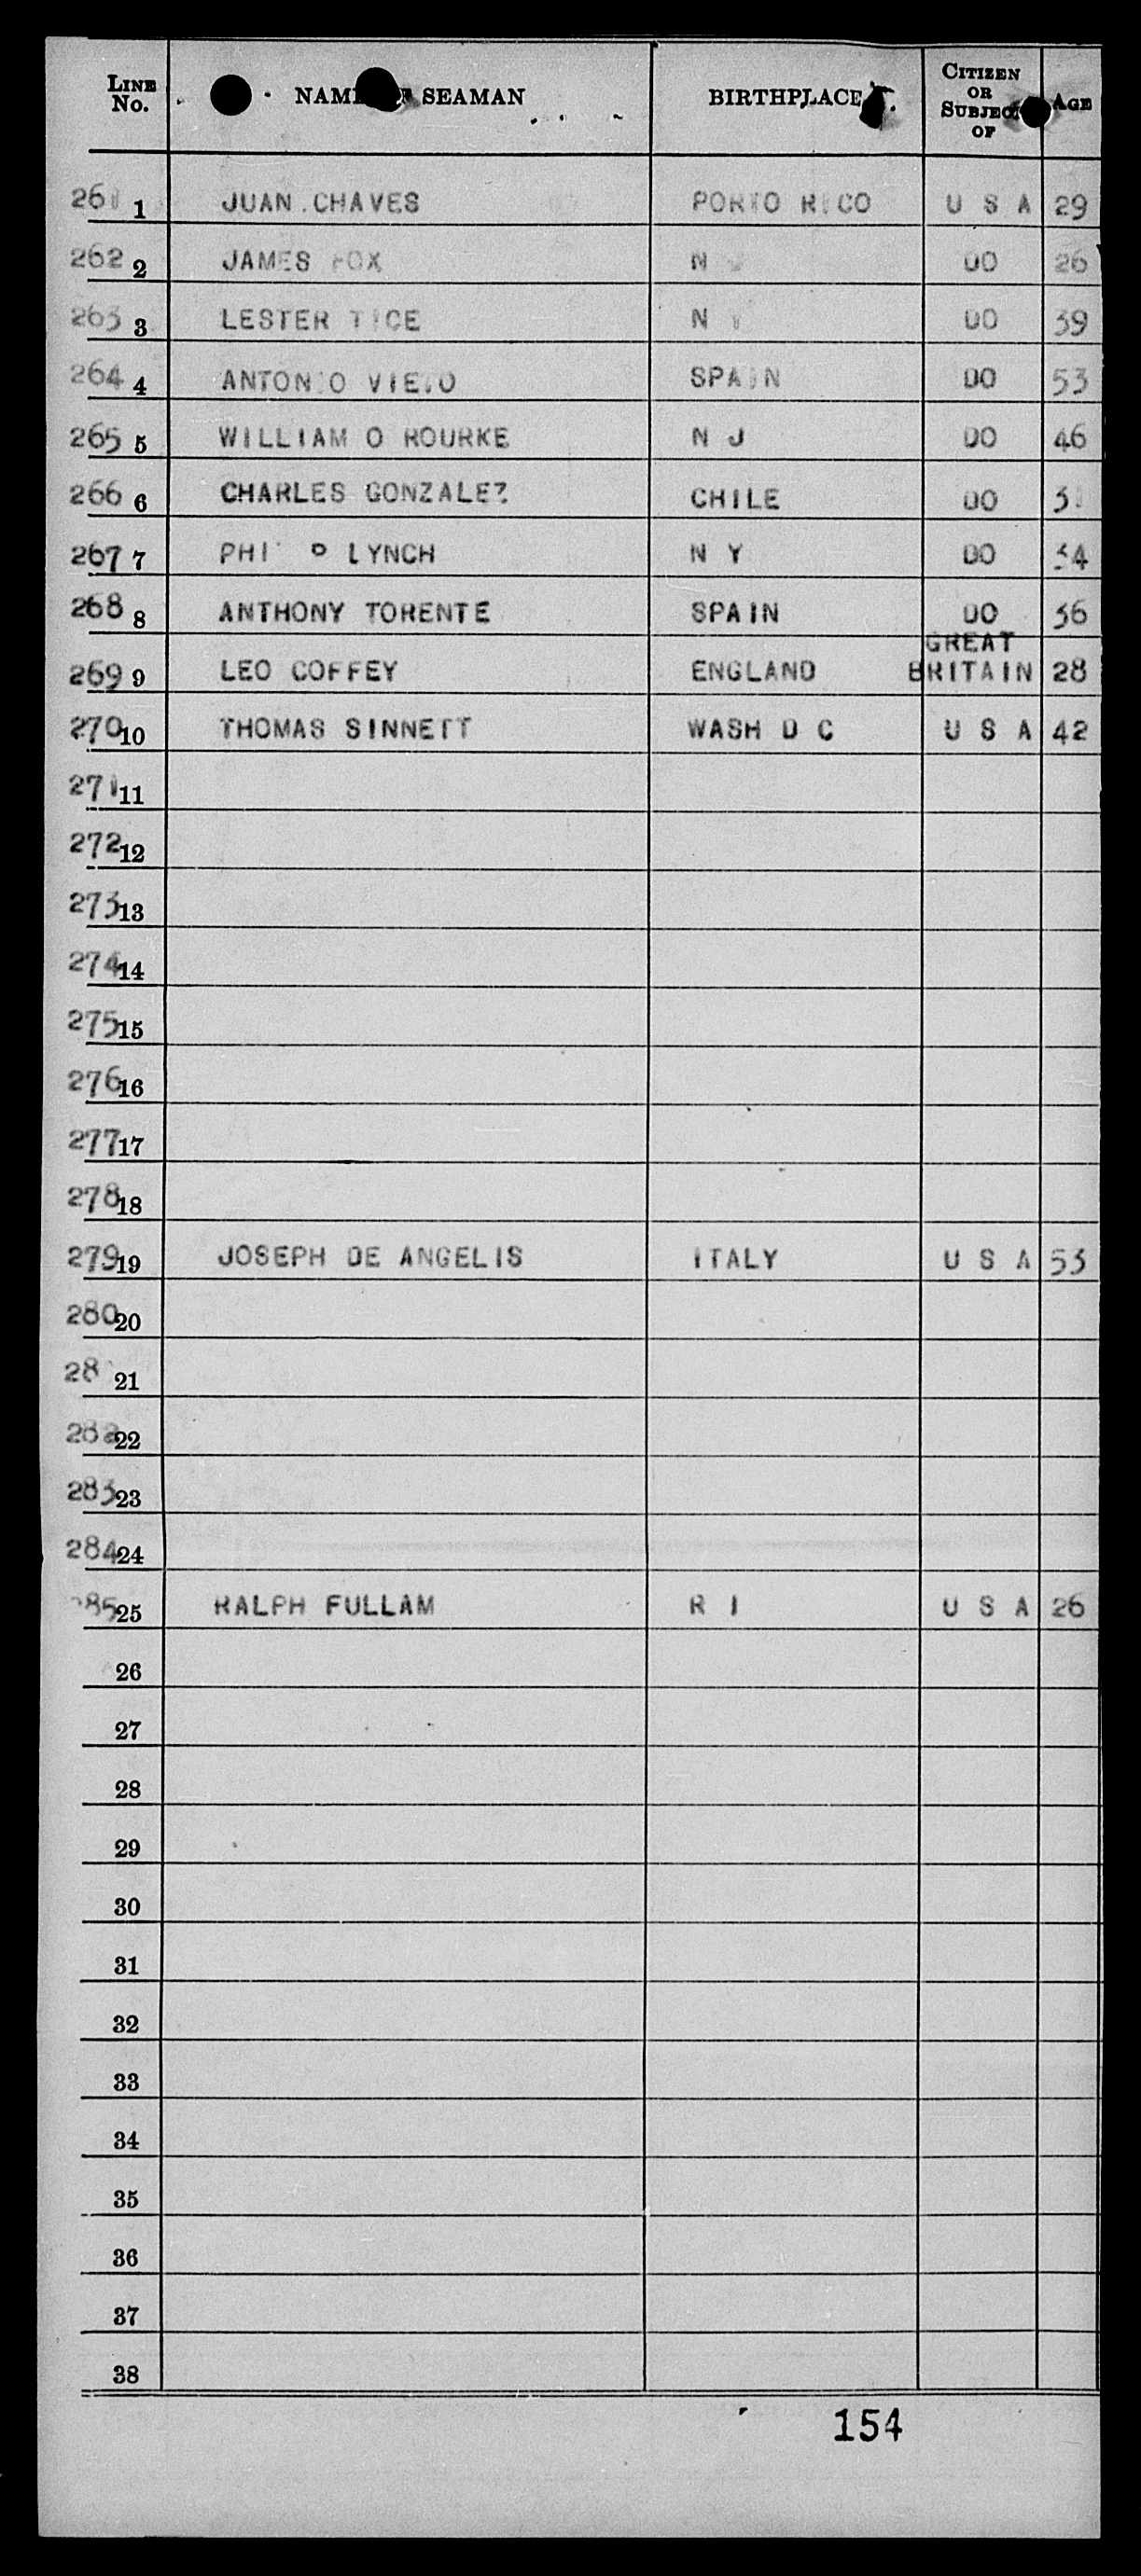 LINE No. SEAMAN BIRTHPLACE CITIZEN OR SUBJECT OF AGE
261 1 JUAN CHAVES PORTO RICO U S A 29
262 2 JAMES FOX N DO 26
263 3 LESTER TICE N Y DO 39
264 4 ANTONIO SPAIN DO 53
265 5 WILLIAM O ROURKE N J DO 46
266 6 CHARLES GONZALEZ CHILE DO
267 7 LYNCH N Y DO 34
268 8 ANTHONY TORENTE SPAIN DO 36
269 9 LEO COFFEY ENGLAND GREAT BRITAIN 28
270 10 THOMAS SINNETT WASH D C U S A 42
271 11
272 12
273 13
274 14
275 15
276 16
277 17
278 18
279 19 JOSEPH DE ANGELIS ITALY U S A 53
280 20
28 21
282 22
283 23
284 24
285 25 RALPH FULLAM R I U S A 26
26
27
28
29
30
31
32
33
34
35
36
37
38
154